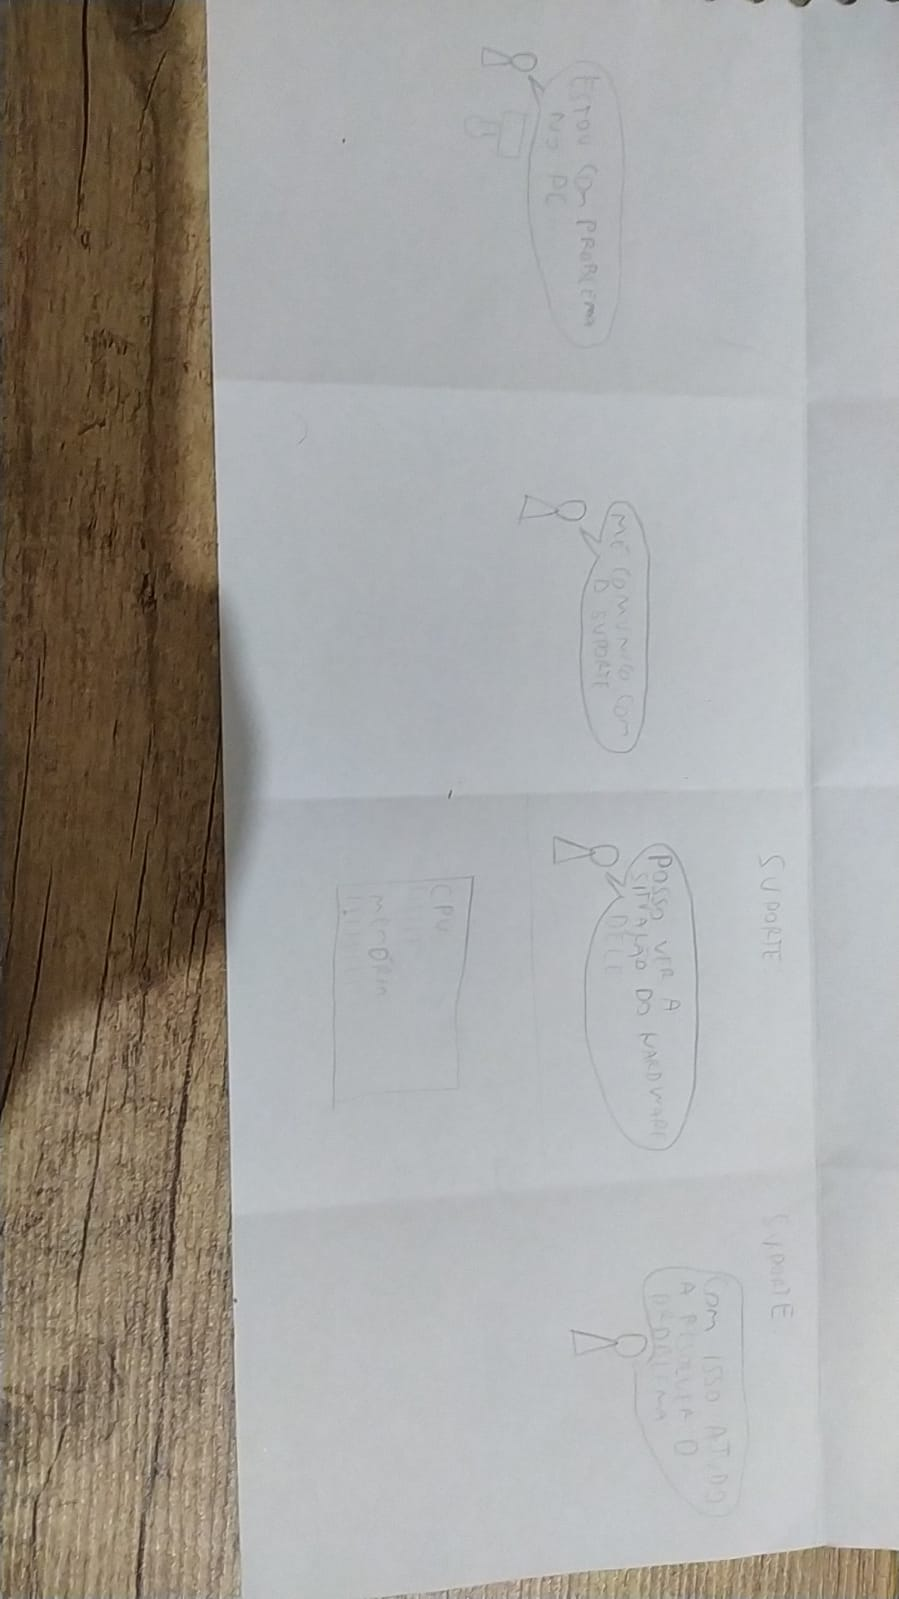 ESTOU COM PROBLEMA
NO PC
ME COMUNICO COM
O SUPORTE
SUPORTE
POSSO VER A
SITUAÇÃO DO HARDWARE
DELE
CPU
MEMÓRIA
SUPORTE
COM ISSO AJUDO
A RESOLVER O
PROBLEMA